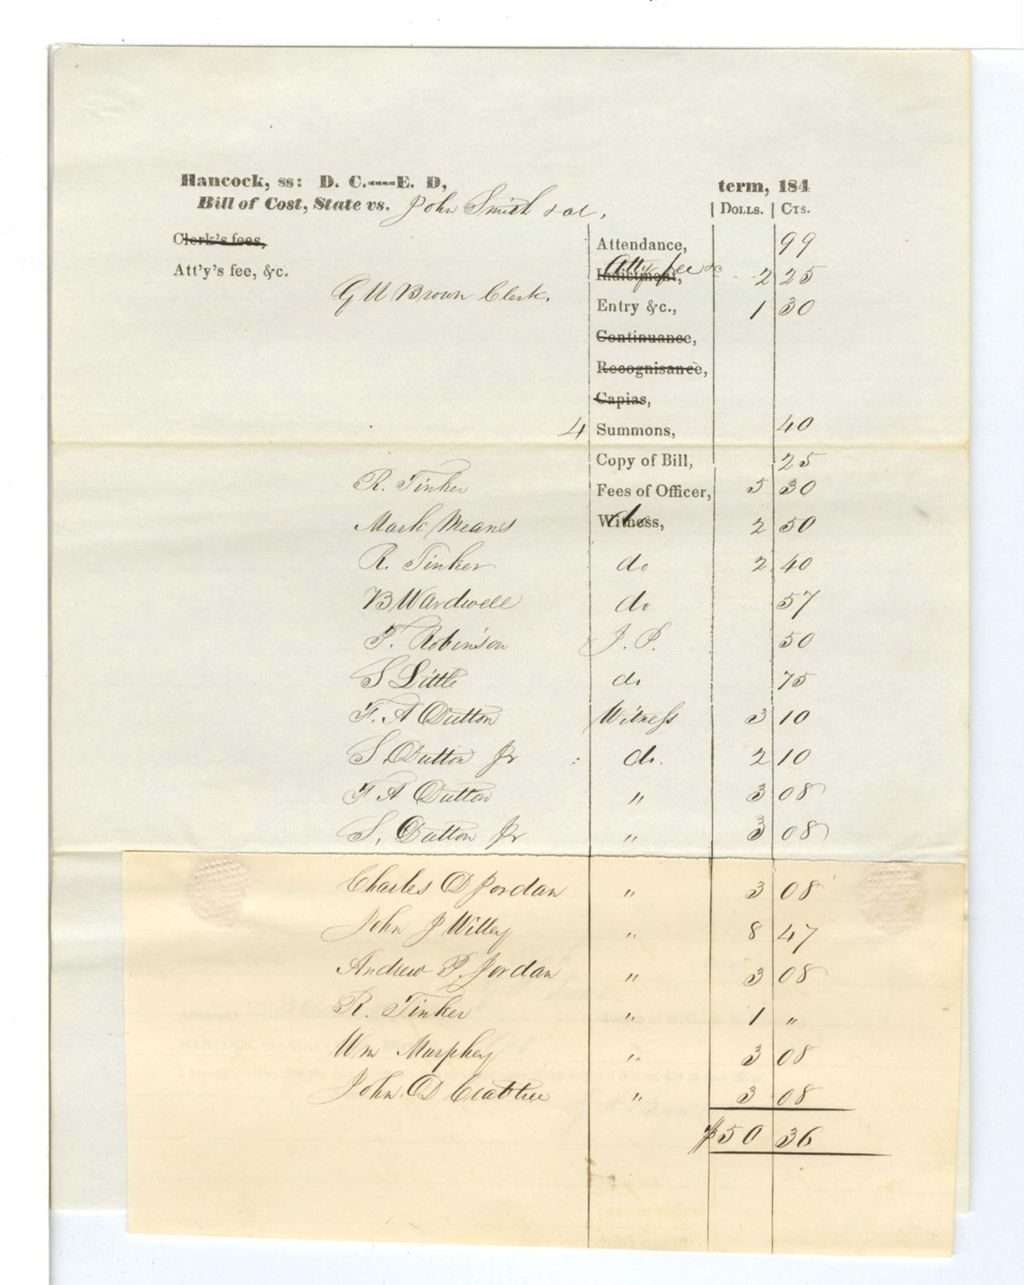 Hancock, ss: D. C.----E. D, term, 184
Bill of Cost, State vs. John Smith & al, Dolls. Cts.
Clerk's fees, Attendance, 99
Att'y's fee, &c. Indictment, Atty fee &c 2 25
G W Brown Clerk. Entry &c., 1 30
Continuance,
Recognisance,
Capias,
4 Summons, 40
Copy of Bill, 25
R. Tinker Fees of Officer, 5 30
Mark Means Witness, do 2 50
R. Tinker do 2 40
B Wardwell do 57
T. Robinson J. P. 50
S Little do 75
F. A Dutton Witness 3 10
S. Dutton Jr : do. 2 10
F A Dutton " 3 08
S, Dutton Jr " 3 08
Charles D Jordan " 3 08
John J Willey " 8 47
Andrew P. Jordan " 3 08
R. Tinker " 1 "
Wm Murphey " 3 08
John. D Crabtree " 3 08
$50 36